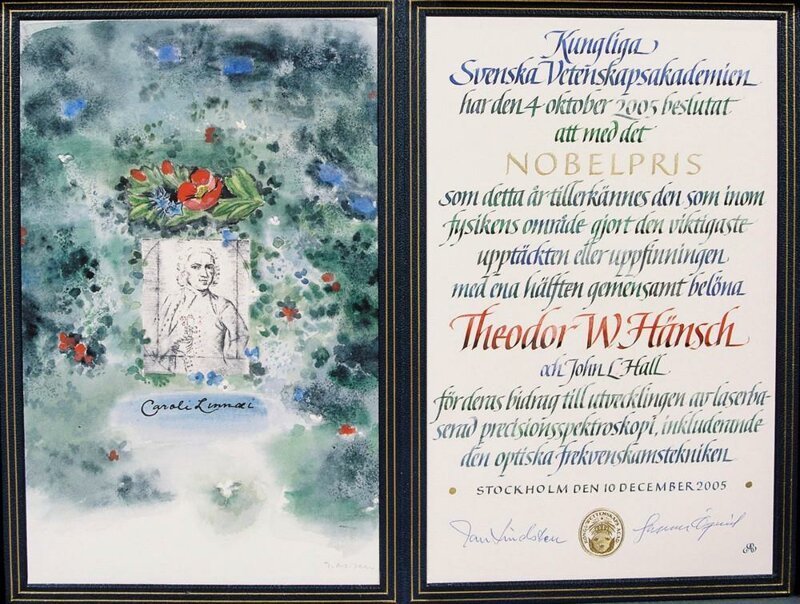 Caroli Linnæi
Kungliga
Svenska Vetenskapsakademien
har den 4 oktober 2005 beslutat
att med det
NOBELPRIS
som detta år tillerkännes den som inom
fysikens område gjort den viktigaste
upptäckten eller uppfinningen
med ena hälften gemensamt belöna
Theodor W. Hänsch
och John L Hall
för deras bidrag till utvecklingen av laserba-
serad precisionsspektroskopi, inkluderande
den optiska frekvenskamstekniken
STOCKHOLM DEN 10 DECEMBER 2005
Jan Lindsten